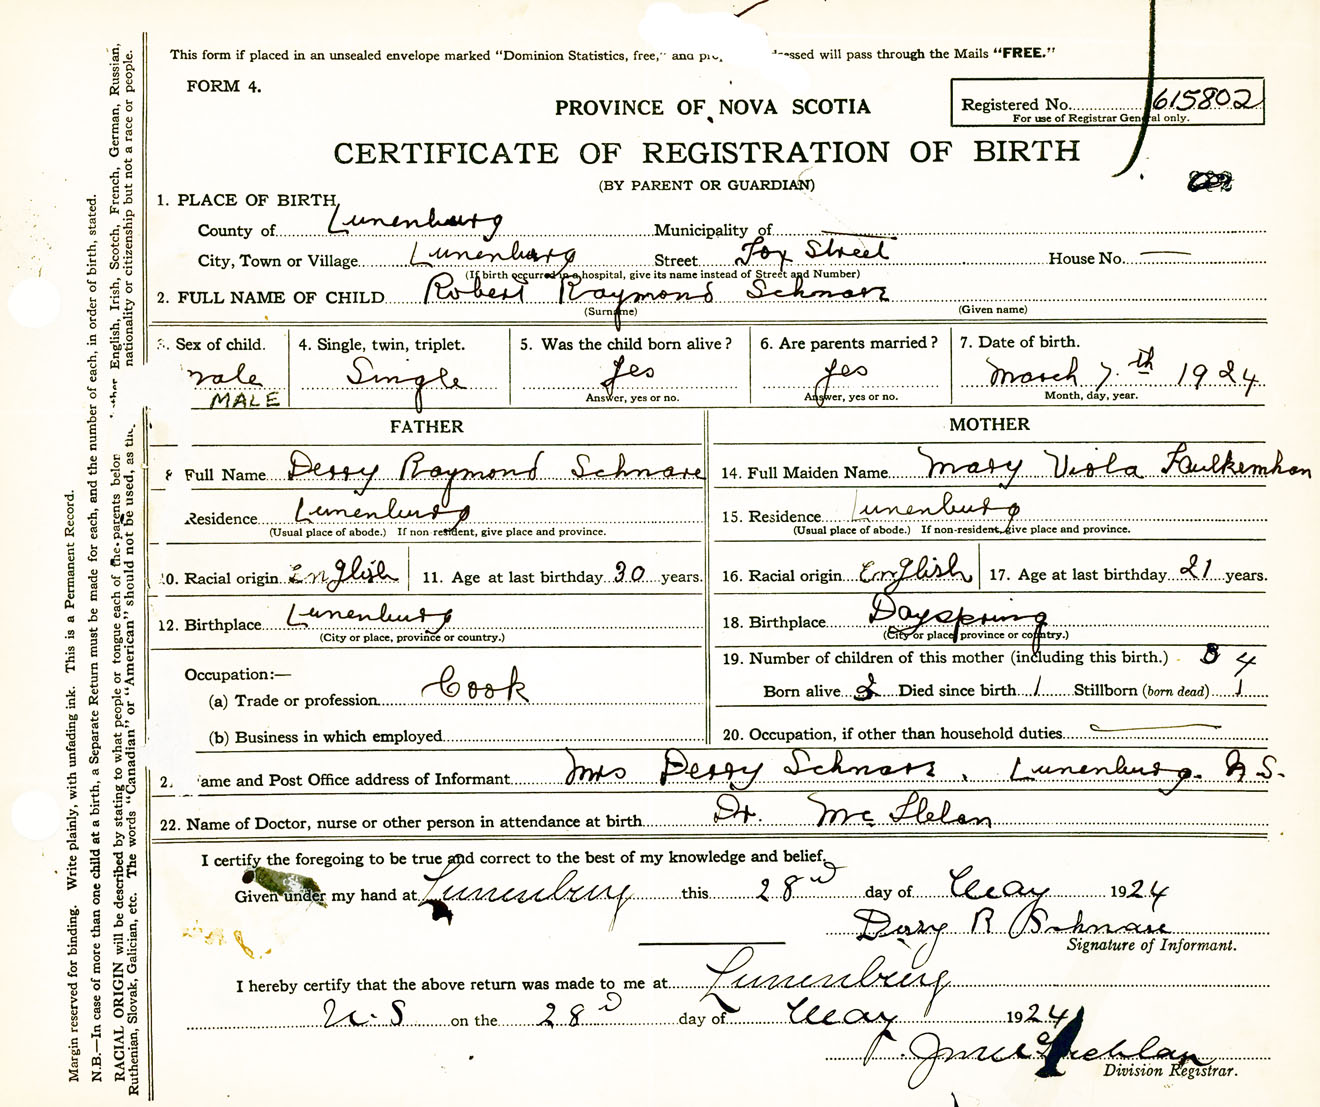 This form if placed in an unsealed envelope marked "Dominion Statistics, free," and will pass through the Mails "FREE."
FORM 4.
PROVINCE OF NOVA SCOTIA
Registered No. 615802
For use of Registrar General only.
CERTIFICATE OF REGISTRATION OF BIRTH
(BY PARENT OR GUARDIAN)
1. PLACE OF BIRTH
County of Lunenburg Municipality of —
City, Town or Village Lunenburg Street Fox Street House No. —
(If birth occurred in a hospital, give its name instead of Street and Number)
2. FULL NAME OF CHILD Robert Raymond Schnare
(Surname) (Given name)
3. Sex of child. 4. Single, twin, triplet. 5. Was the child born alive? 6. Are parents married? 7. Date of birth.
male Single yes yes March 7th 1924
MALE Answer, yes or no. Answer, yes or no. Month, day, year.
FATHER MOTHER
8 Full Name Derry Raymond Schnare 14. Full Maiden Name Mary Viola Faulkemhan
Residence Lunenburg 15. Residence Lunenburg
(Usual place of abode.) If non-resident, give place and province. (Usual place of abode.) If non-resident, give place and province.
10. Racial origin English 11. Age at last birthday 30 years. 16. Racial origin English 17. Age at last birthday 21 years.
12. Birthplace Lunenburg 18. Birthplace Dayspring
(City or place, province or country.) (City or place province or country.)
Occupation:— 19. Number of children of this mother (including this birth.) 4
(a) Trade or profession Cook Born alive 2 Died since birth 1 Stillborn (born dead) 1
(b) Business in which employed 20. Occupation, if other than household duties —
2 ame and Post Office address of Informant Mrs Derry Schnare, Lunenburg. N.S.
22. Name of Doctor, nurse or other person in attendance at birth Dr.
I certify the foregoing to be true and correct to the best of my knowledge and belief.
Given under my hand at Lunenburg this 28th day of May 1924
Derry R Schnare
Signature of Informant.
I hereby certify that the above return was made to me at Lunenburg
N.S on the 28 day of May 1924
Division Registrar.
Margin reserved for binding. Write plainly, with unfading ink. This is a Permanent Record.
N.B.—In case of more than one child at a birth, a Separate Return must be made for each, and the number of each, in order of birth, stated.
RACIAL ORIGIN will be described by stating to what people or tongue each of the parents belon English, Irish, Scotch, French, German, Russian,
Ruthenian, Slovak, Galician, etc. The words "Canadian" or "American" should not be used, as th nationality or citizenship but not a race or people.